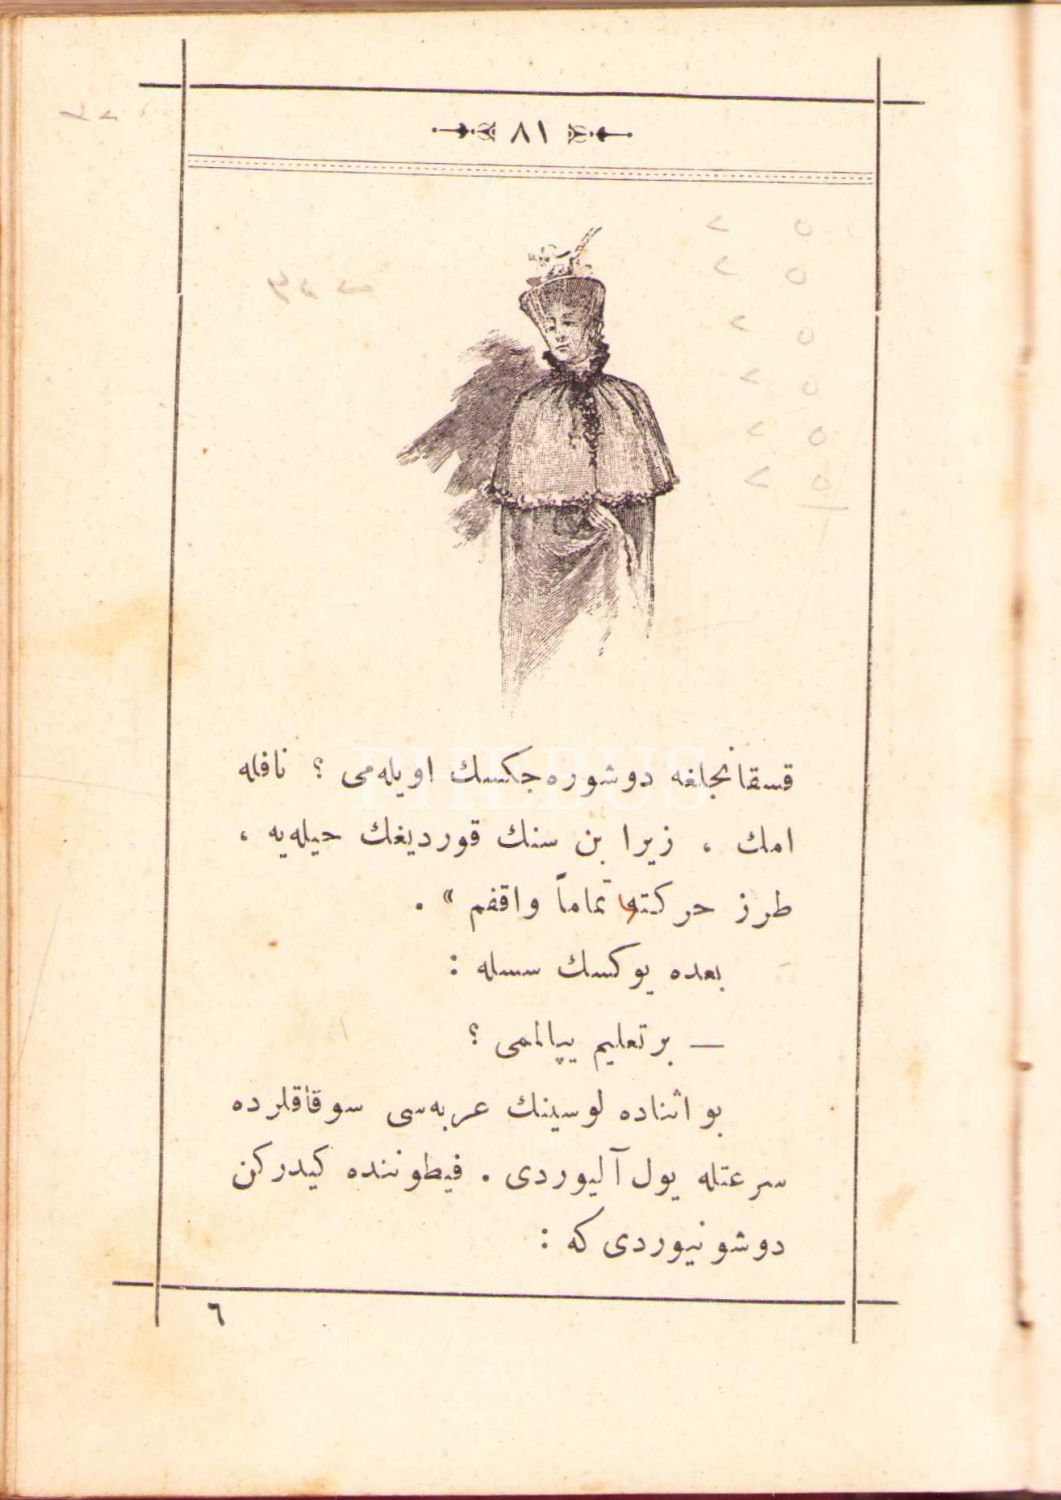 ٨١
قسقانجلغه دوشوره‌جكسك اويله‌می ؟ نافله
امك ، زيرا بن سنك قورديغك حيله‌يه ،
طرز حركته تماماً واقفم » .
بعده يوكسك سسله :
— بر تعليم يپالمی ؟
بو اثناده لوسينك عربه‌سی سوقاقلرده
سرعتله يول آليوردی . فيطوننده كيدركن
دوشونيوردی كه :
٦
PHEBUS